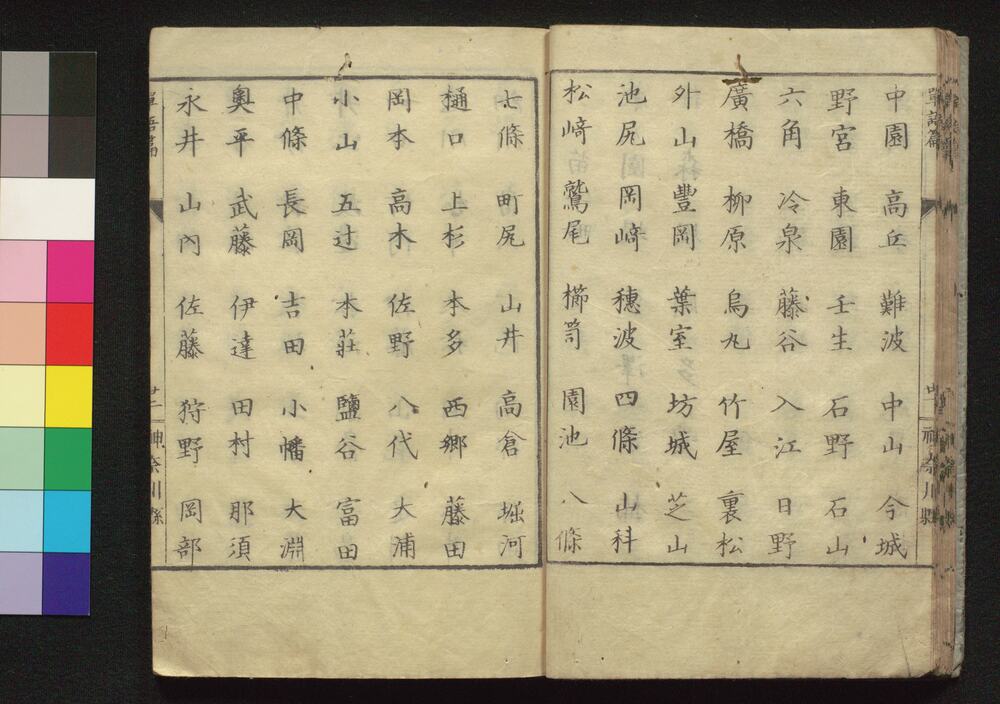 中園 高丘 難波 中山 今城
野宮 東園 壬生 石野 石山
六角 冷泉 藤谷 入江 日野
廣橋 柳原 烏丸 竹屋 裏松
外山 豐岡 葉室 坊城 芝山
池尻 岡﨑 穗波 四條 山科
松﨑 鷲尾 櫛笥 園池 八條
七條 町尻 山井 高倉 堀河
樋口 上杉 本多 西鄉 藤田
岡本 高木 佐野 八代 大浦
小山 五辻 本莊 鹽谷 富田
中條 長岡 吉田 小幡 大淵
奧平 武藤 伊達 田村 那須
永井 山內 佐藤 狩野 岡部
單語篇 廿二 神奈川縣